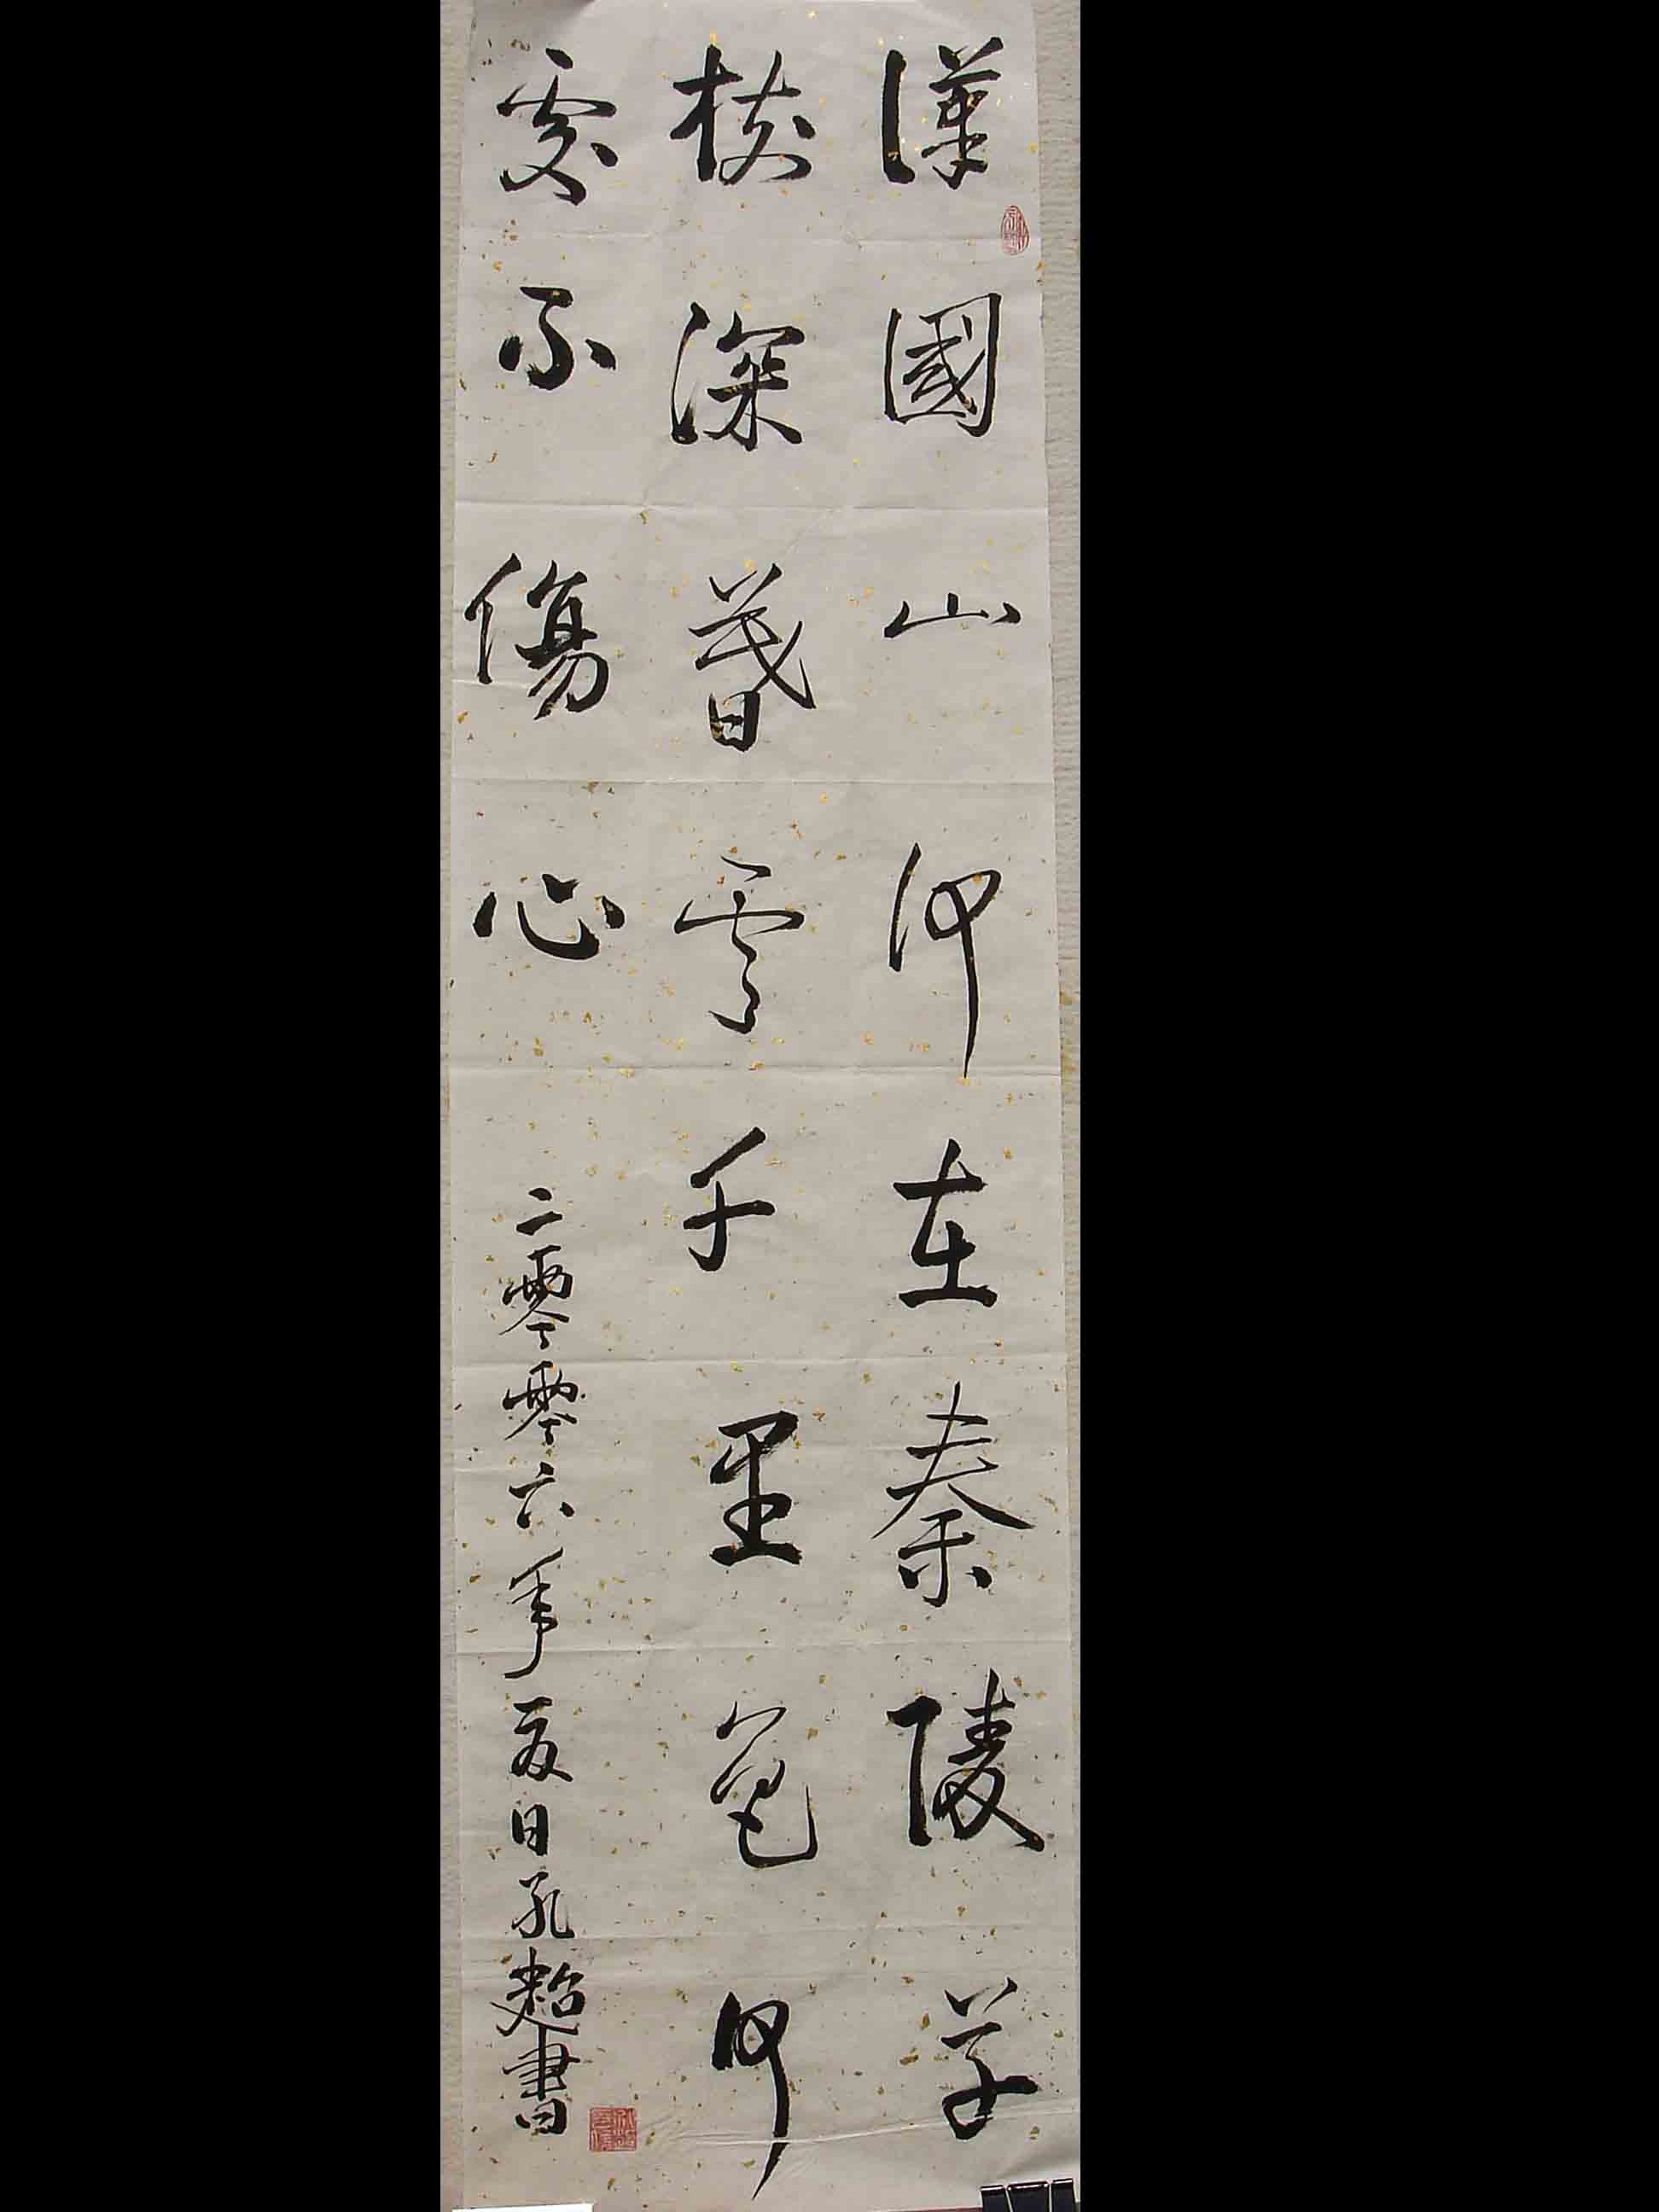 漢國山河在秦陵草
樹深暮雲千里色何
處不傷心
二零零六年夏日孔超書